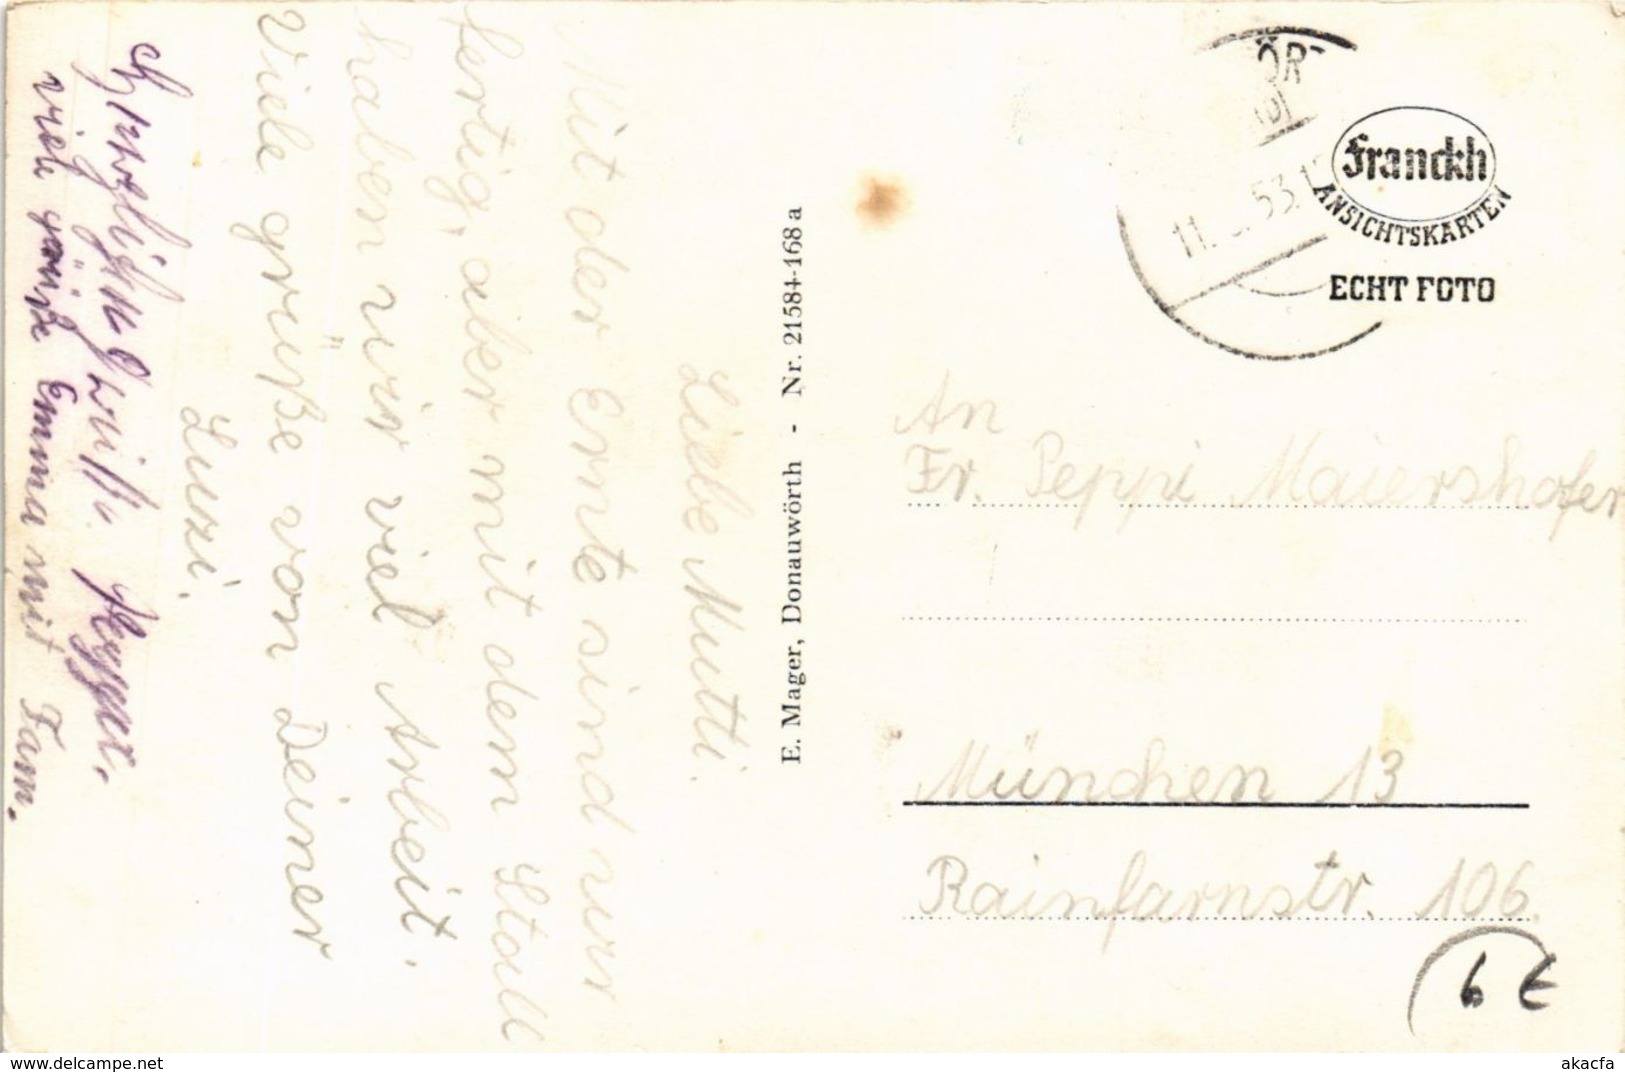 Liebe Mutti.
Mit der Ernte sind wir
fertig, aber mit dem Stall
haben wir viel Arbeit.
Viele grüße von Deiner
Luzi.
viele grüße Emma mit Fam.
E. Mager, Donauwörth - Nr. 21584-168a
ÖR
11. 53.
Franckh
ANSICHTSKARTEN
ECHT FOTO
An
Fr. Peppi Maiershofer
München 13
Rainfarnstr. 106
6 E
delcampe.net
akacfa